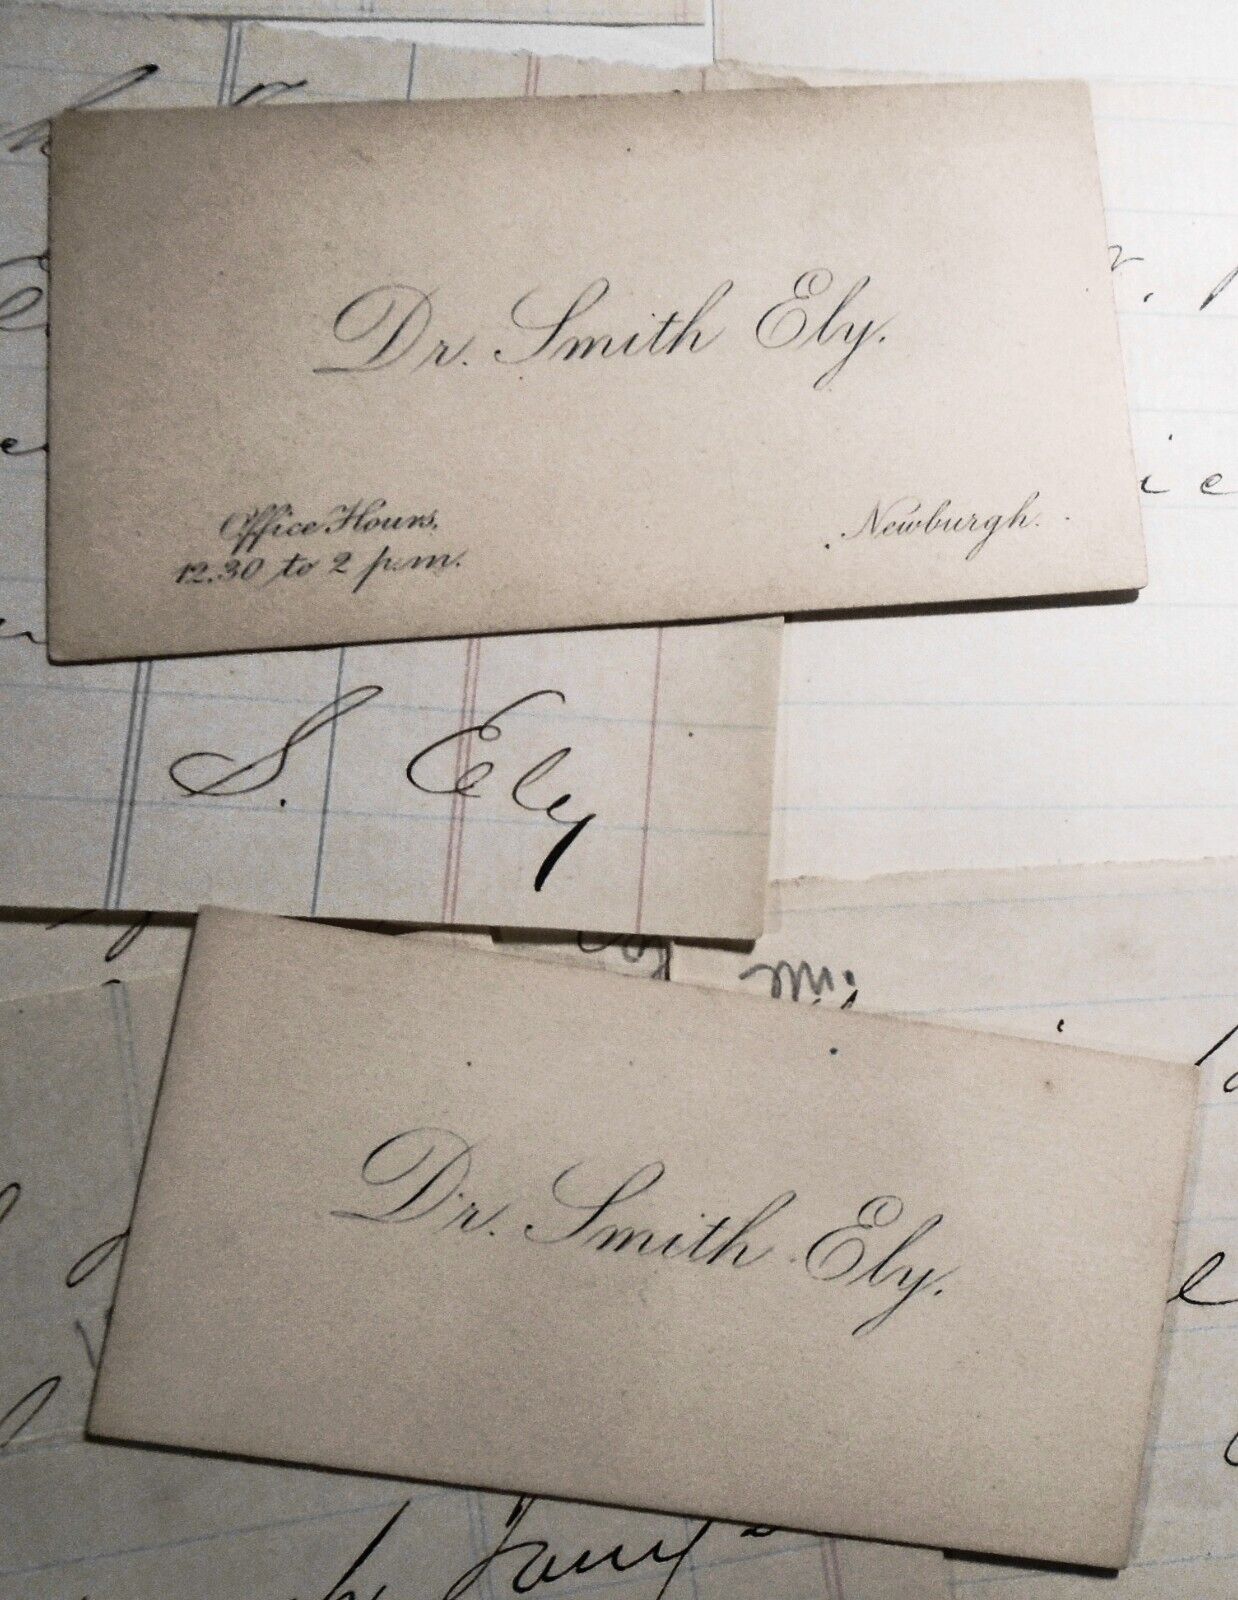 Dr. Smith Ely.
Office Hours.
12.30 to 2 p.m.
Newburgh.
S. Ely
Dr. Smith Ely.